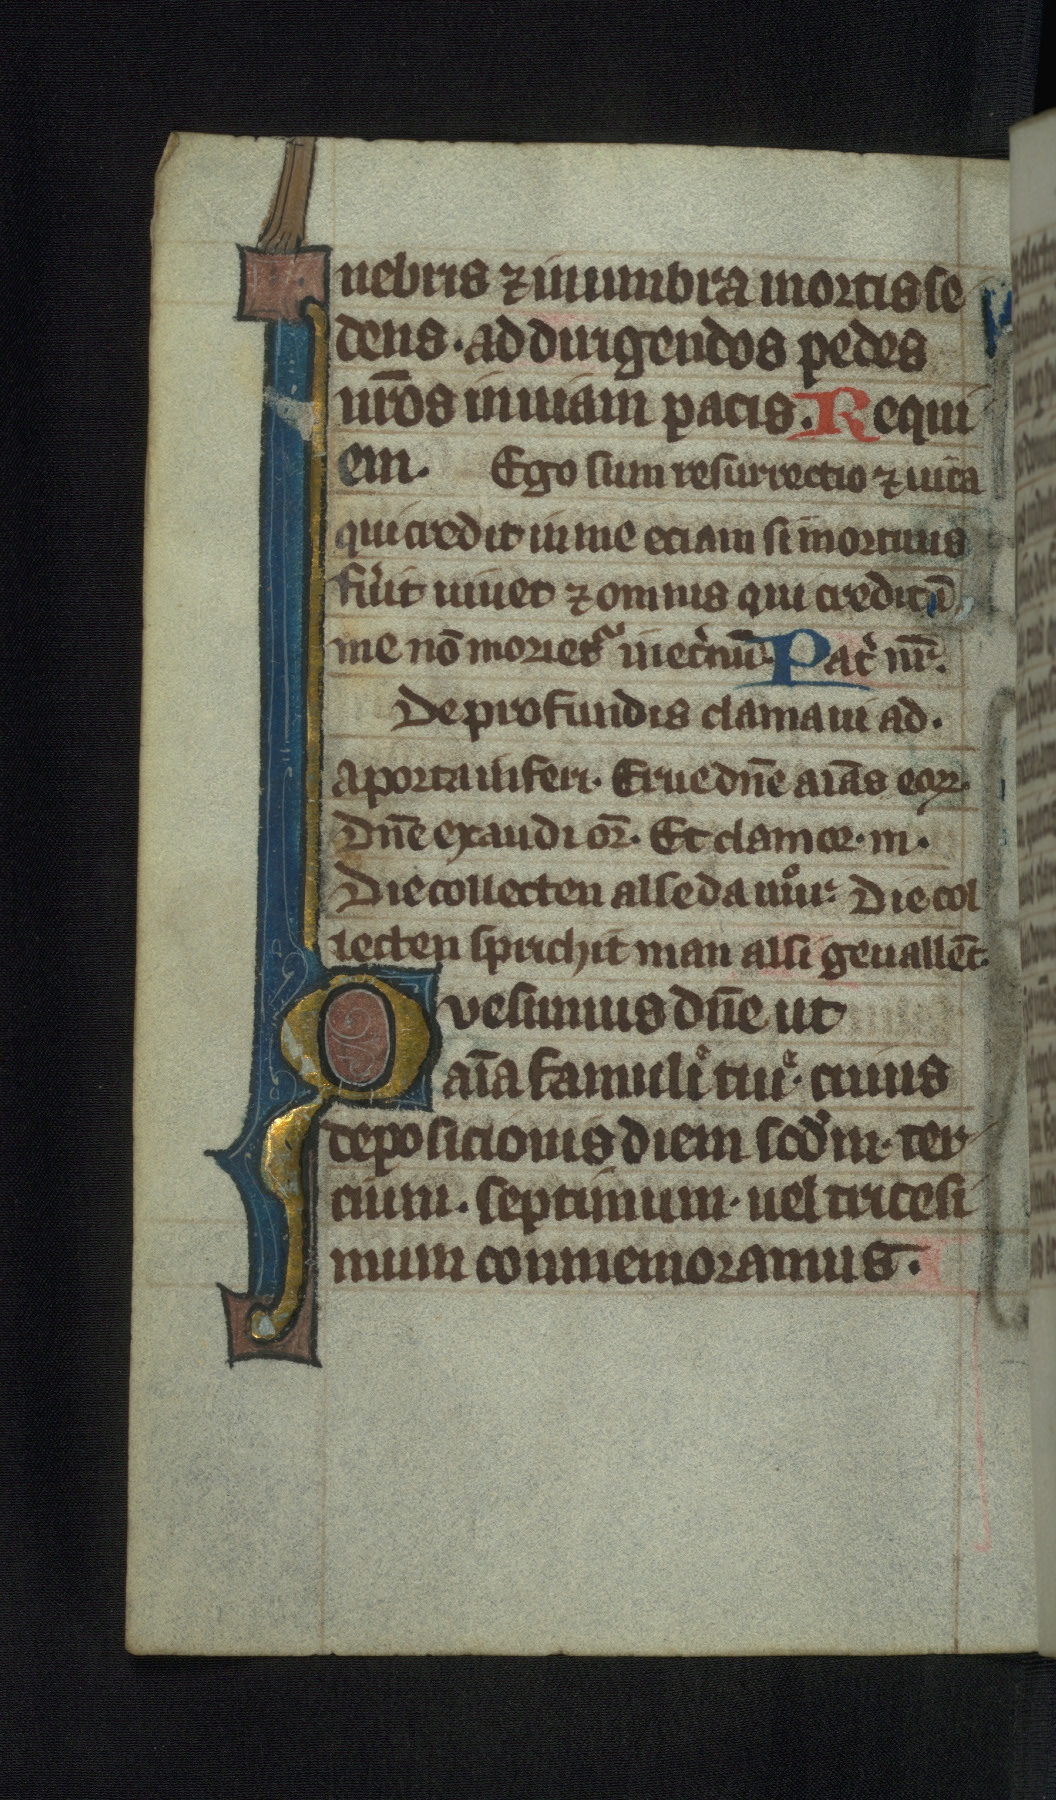 nebris ⁊ in umbra mortis se
dens · ad dirigendos pedes
nr̄os in uiam pacis. Requi
em. Ego sum resurrectio ⁊ uita
qui credit in me eciam si mortuus
fu̓it uiuet ⁊ omnis qui credit ī
me nō moriet᷑ inet̓nū. Pat̓ nr̄.
De profundis clamaui ad.
a porta inferi. Erue dn̄e aīas eoꝝ.
Dn̄e exaudi or̄. Et clamor · m ·
Die collecten alse da uoͦr Die col
lecten sprichit man alsi geuallēt.
Qvesumus dn̄e ut
aīa famuliͤ tuiͤ · cuius
deposicionis diem scd̓m · ter
cium · septimum · uel tricesi
mum conmemoramus.